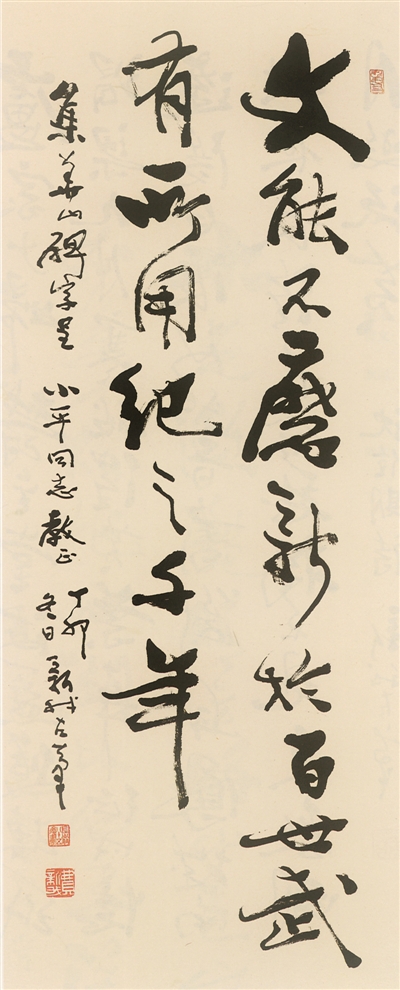 文能不磨新於百世武
有所用纪之千年
集华山碑字呈 小平同志教正 丁卯
冬日 新